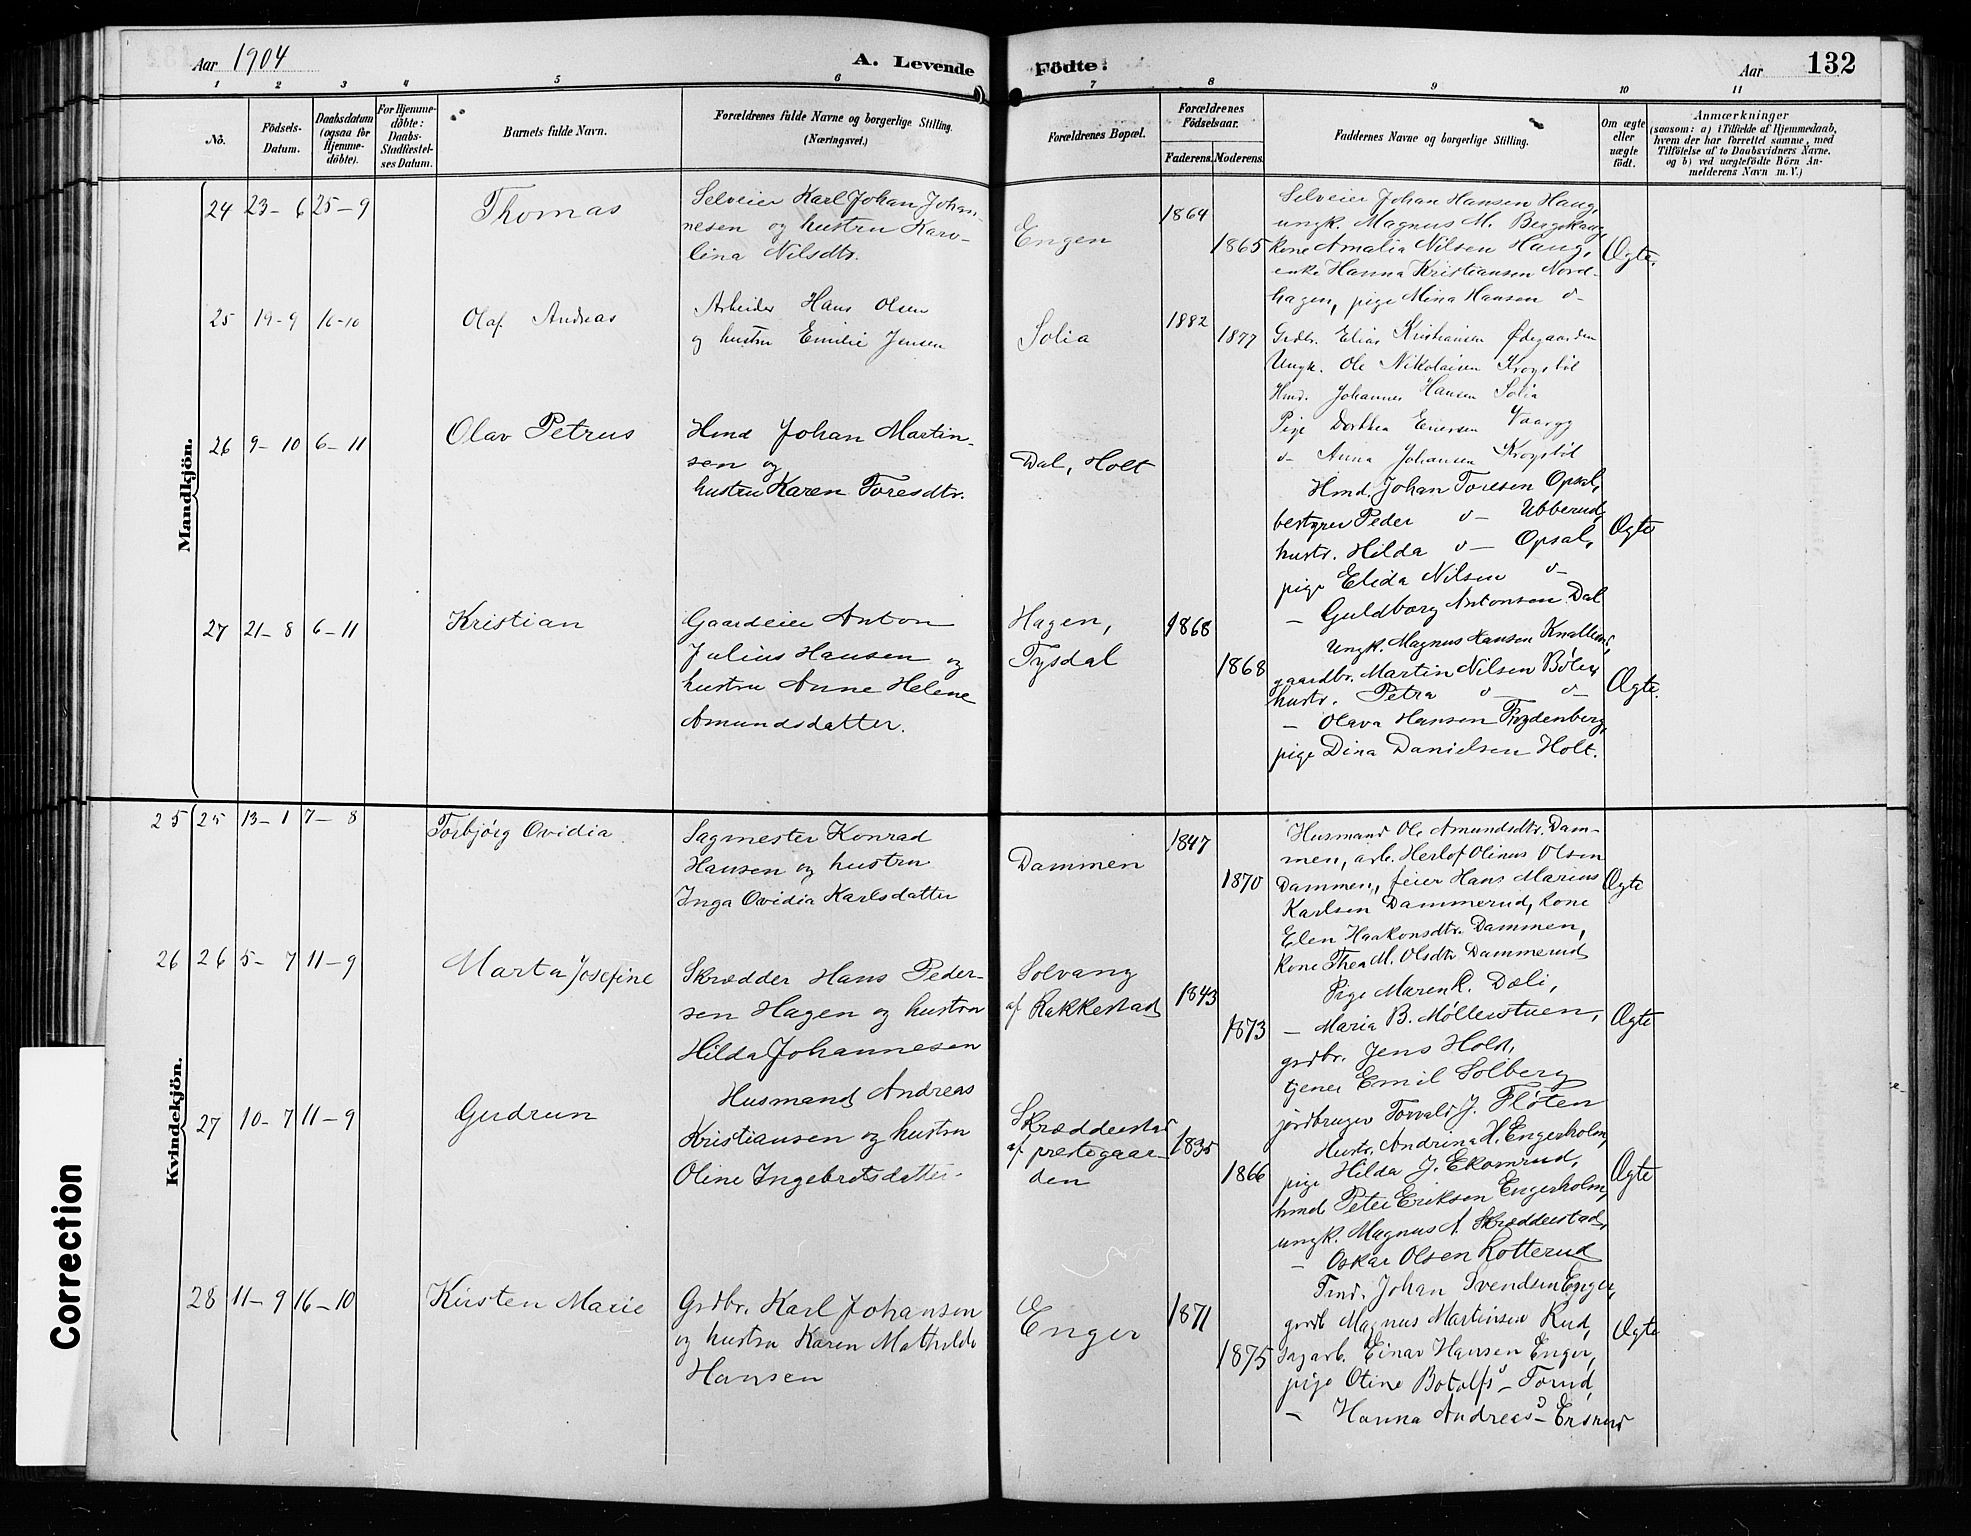 Aar 1904
A. Levende
Födte:
Aar
132
1 2 3 4 5 6 7 8 9 10 11
No.
Födsels-
Datum.
Daabsdatum
(ogsaa for
Hjemme-
döbte).
For Hjemme-
döbte:
Daabs-
Stadfæstel-
ses Datum.
Barnets fulde Navn.
Forældrenes fulde Navne og borgerlige Stilling.
(Næringsvei.)
Forældrenes Bopæl.
Forældrenes
Födselsaar.
Faderens. Moderens.
Faddernes Navne og borgerlige Stilling.
Om ægte
eller
uægte
födt.
Anmærkninger
(saasom: a) i Tilfælde af Hjemmedaab,
hvem der har forrettet samme, med
Tilföielse af to Daabsvidners Navne,
og b) ved uægtefödte Börn An-
melderens Navn m. V.)
Mandkjön.
24 23-6 25-9
Thomas
Selveier Karl Johan Johan-
nesen og hustru Karo-
lina Nilsdtr.
Engen
1864
1865
Selveier Johan Hansen Haug,
ungk. Magnus M. Bergshaug,
kone Amalia Nilsen Haug,
enke Hanna Kristiansen Nord-
hagen, pige Mina Hansen d-
Ægte.
25 19-9 16-10
Olaf Andreas
Arbeider Hans Olsen
og hustru Emilie Jensen
Solia
1882
1877
Grdbr. Elias Kristiansen Ødegaarden
Ungk. Ole Nikolaisen Krogstöl
Hmd. Johannes Hansen Solia
Pige Dorthea Enersen
d- Anna Johansen Krogstöl
26 9-10 6-11
Olav Petrus
Hmd Johan Martin-
sen og
hustru Karen Toresdtr.
Dal, Holt
Hmd. Johan Toresen Opsal,
bestyrer Peder d- Ubberud,
hustr. Hilda d- Opsal,
pige Elida Nilsen d-
- Guldborg Antonsen Dal
Ægte
27 21-8 6-11
Kristian
Gaardeier Anton
Julius Hansen og
hustru Anne Helene
Amundsdatter.
Hagen,
Tysdal
1868
1868
Ungk. Magnus Hansen
gaardbr. Martin Nilsen Bøler
hustr. Petra d- d-
- Olava Hansen Frydenberg,
pige Dina Danielsen Holt.
Ægte.
Kvindekjön.
25 25 13-1 7-8
Torbjörg Ovidia
Sagmester Konrad
Hansen og hustru
Inga Ovidia Karlsdatter
Dammen
1847
1870
Husmand Ole Amundsdtr. Dam-
men, arb. Herlof Olinus Olsen
Dammen, feier Hans Marius
Karlsen Dammerud, kone
Elen Haakonsdtr. Dammen,
kone Thea M. Olsdtr Dammerud
Ægte
26 26 5-7 11-9
Marta Josefine
Skrædder Hans Peder-
sen Hagen og hustru
Hilda Johannesen
Solvang
af Rakkestad
1843
1873
Pige Maren K. Dæli,
- Maria B. Møllerstuen,
grdbr. Jens Hold,
tjener Emil Solberg
jordbruger Torvald J. Fløten
Ægte
27 10-7 11-9
Gudrun
Husmand Andreas
Kristiansen og hustru
Oline Ingebretsdatter
Skrædderstad
af prestegaar-
den
1835
1866
Hustr. Andrina H. Engerholm,
pige Hilda J. Ekornrud,
hmd Peter Eriksen Engerholm,
ungk. Magnus A. Skrædderstad,
- Oskar Olsen Kotterud
Ægte
28 11-9 16-10
Kirsten Marie
Grdbr. Karl Johansen
og hustru Karen Mathilde
Hansen
Enger
1871
1875
Tmd. Johan Svendsen Enger,
grdb Magnus Martinsen Rud,
sagarb. Einar Hansen Enger,
pige Otine Botolfs- Torud,
- Hanna Andreas-
Ægte
Correction